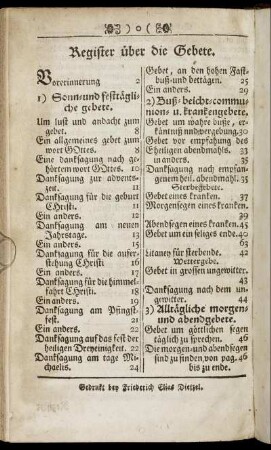 ) o (
Register über die Gebete.
Vorerinnerung 2
1) Sonn- und festtägli-
che gebete.
Um lust und andacht zum
gebet. 8
Ein allgemeines gebet zum
wort GOttes. 8
Eine danksagung nach ge-
hörtem wort GOttes. 10
Danksagung zur advents-
zeit. 11
Danksagung für die geburt
CHristi. 11
Ein anders. 12
Danksagung am neuen
Jahrstage. 13
Ein anders. 15
Danksagung für die aufer-
stehung CHristi 16
Ein anders. 17
Danksagung für die himmel-
fahrt CHristi. 18
Ein anders. 19
Danksagung am Pfingst-
fest. 21
Ein anders. 22
Danksagung auf das fest der
heiligen Dreyeinigkeit. 22
Danksagung am tage Mi-
chaelis. 24
Gebet, an den hohen Fast-
buß- und bettägen. 25
Ein anders. 29
2) Buß- beicht- commu-
nion- u. krankengebete.
Gebet um wahre buße, er-
käntniß und vergebung. 30
Gebet vor empfahung des
Heiligen abendmahls. 33
in anders. 35
Danksagung nach emp-
fangenem heil. abendmahl. 35
Sterbegebete.
Gebet eines kranken. 37
Morgensegen eines kranken.
39
Abendsegen eines kranken. 45
Gebet um ein seliges ende. 40
63
Litaney für sterbende. 42
Wettergebet.
Gebet in grossen ungewitter.
43
Danksagung nach dem un-
gewitter. 44
3) Alltägliche morgen-
und abendgebete.
Gebet um göttlichen segen
täglich zu sprechen. 46
Die morgen- und abendsegen
sind zu finden, von pag. 46
bis zu ende.
Gedrukt bey Friederich Elias Dietzel.